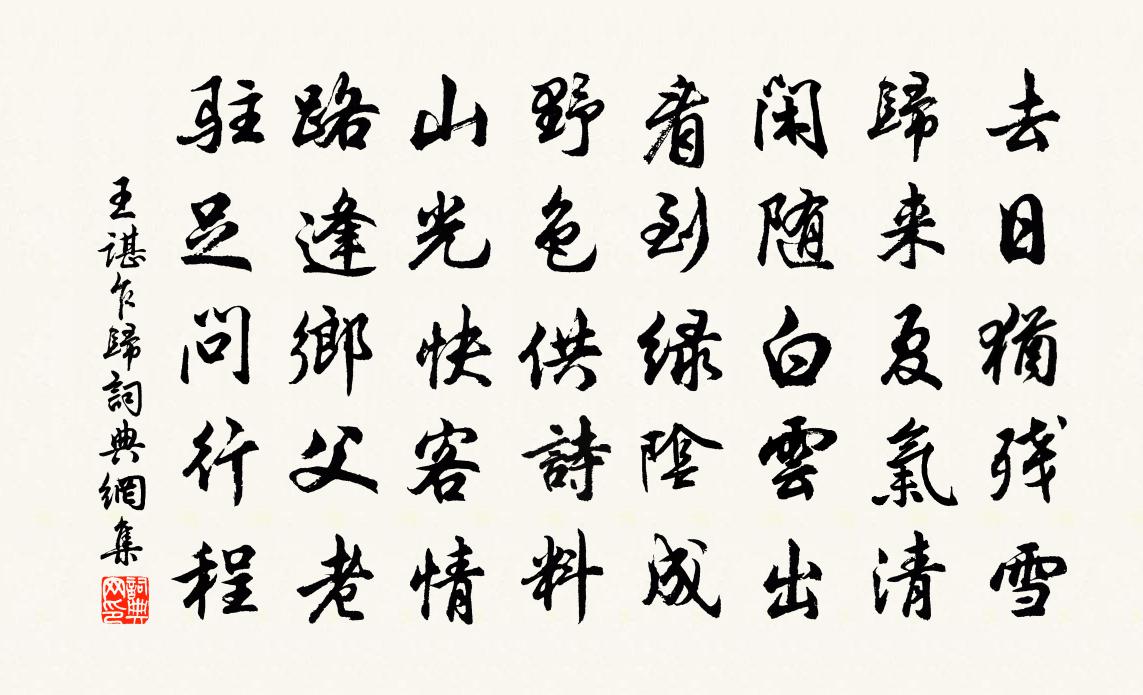 去日猶残雪
歸来夏氣清
闲随白雲出
看到緑陰成
野色供詩料
山光快客情
路逢鄉父老
駐足問行程
王諶乍歸詞典網集
詞典网印